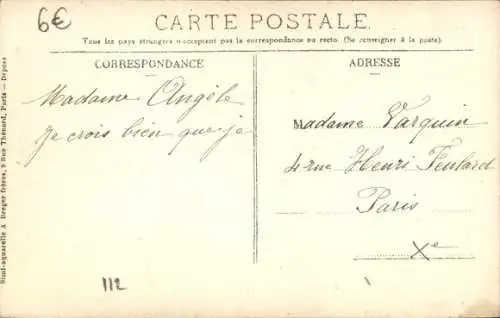 6€
CARTE POSTALE
Tous les pays étrangers n'acceptent pas la correspondance au recto. (Se renseigner à la poste).
CORRESPONDANCE
Madame Angèle
Je crois bien que je
112
ADRESSE
Madame Varquin
4 rue Henri Feulard
Paris
Xe
Simi-aquarelle A. Breger frères, 9 Rue Thénard, Paris — Déposé